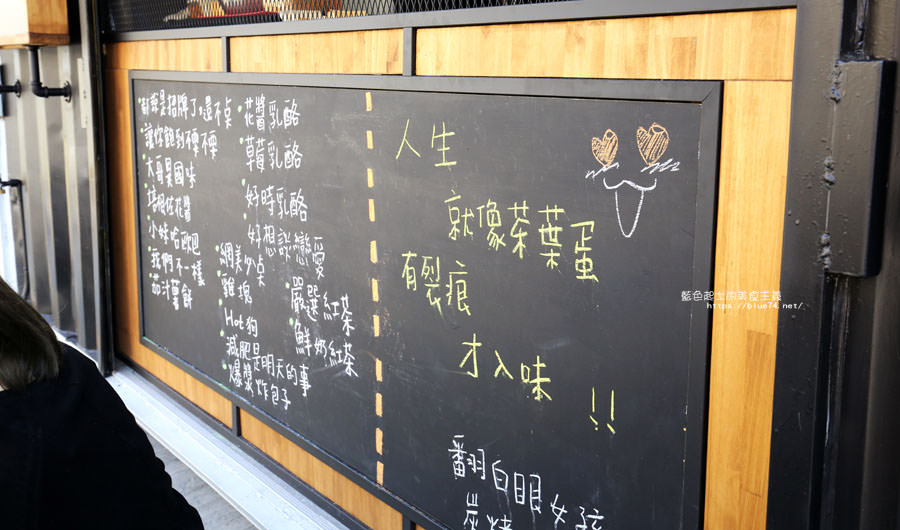 都算是招牌了,還不點
讓你飽到嫑嫑
大哥異國味
培根佐花醬
小妹哈歐跑
我們不一樣
茄汁薯餅
花醬乳酪
草莓乳酪
好時乳酪
好想談戀愛
網美少點
雞塊
Hot狗
減肥是明天的事
爆漿炸包子
嚴選紅茶
鮮奶紅茶
人生
就像茶葉蛋
有裂痕
才入味
!!
翻白眼女孩
藍色起士的美食主義
https://blue74.net/